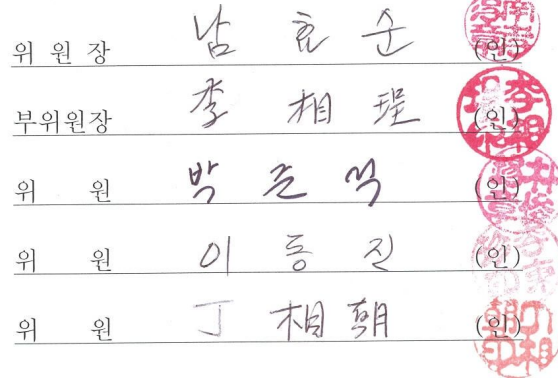 위 원 장 남 효 순 (인)
부위원장 李 相 珵 (인)
위 원 박 준 석 (인)
위 원 이 동 진 (인)
위 원 丁 相 朝 (인)